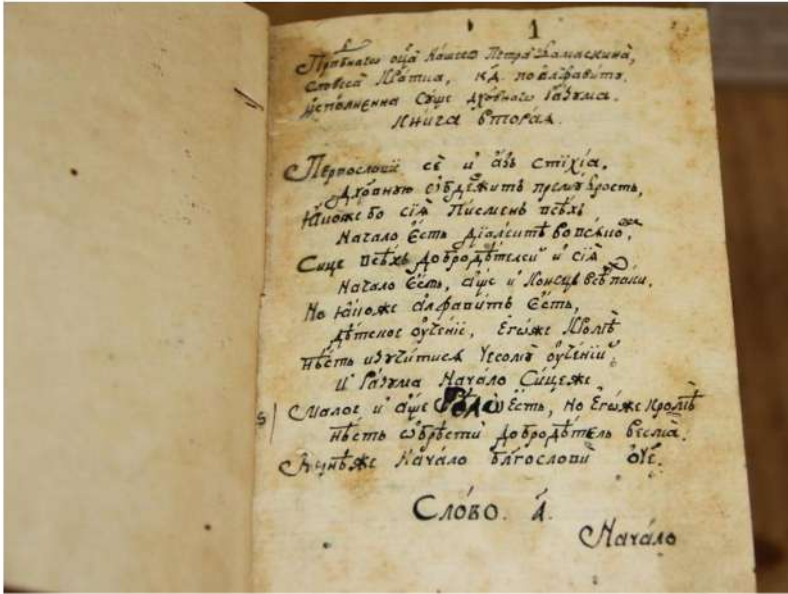 1
Прп҃бнагѡ оц҃а нашегѡ Петра Дамаскина,
словеса кратка, к҃д. по алфавиту.
исполненна суще дх҃овнагѡ разума.
Книга вторая.
Первословїе се и азъ стїхїа,
Дх҃овную содѣжитъ премудрость,
Якоже бо сїя писменъ всѣхъ
Начало есть
Сице всѣхъ добродѣтелей и сїя
Начало есть, аще и конецъ
Но якоже алфавитъ есть,
дѣтское оученїе, егѡже кромѣ
нѣсть изучитися оученїи
и разума начало Сицеже
Ѕ
малое и аще есть, но егѡже кромѣ
нѣсть ѡбрѣсти добродѣтель весма.
начало бл҃гослови ѻ҃че.
Слово. а҃.
Начало